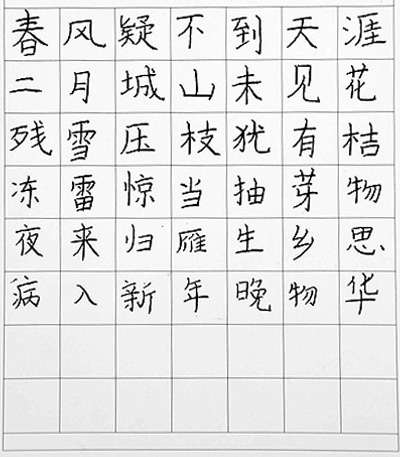 春风疑不到天涯
二月城山未见花
残雪压枝犹有桔
冻雷惊当抽芽物
夜来归雁生乡思
病入新年晚物华